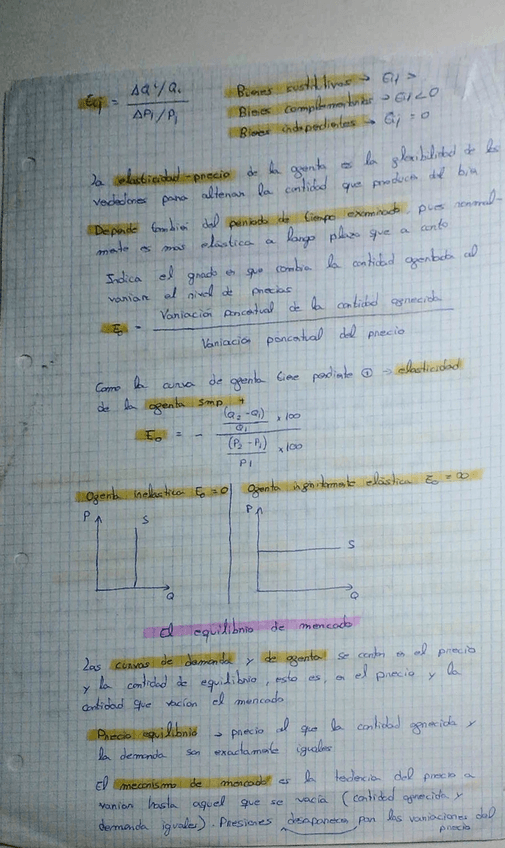 Eij = ΔQi/Qi / ΔPj/Pj
Bienes sustitutivos → Eij >
Bienes complementarios → Eij < 0
Bienes independientes → Eij = 0
La elasticidad-precio de la oferta es la flexibilidad de los
vendedores para alterar la cantidad que produce del bien
Depende también del periodo de tiempo examinado, pues normal-
mente es más elástica a largo plazo que a corto
Indica el grado en que cambia la cantidad ofertada al
variar el nivel de precios
Eo = Variación porcentual de la cantidad ofrecida
Variación porcentual del precio
Como la curva de oferta tiene pendiente ⊕ → elasticidad
de la oferta smp +
Eo = - (Q2-Q1)/Q1 x100
(P2-P1)/P1 x100
Oferta inelástica Eo = 0
Oferta infinitamente elástica Eo = ∞
P S Q
P S Q
El equilibrio de mercado
Las curvas de demanda y de oferta se cortan en el precio
y la cantidad de equilibrio, esto es, en el precio y la
cantidad que vacían el mercado
Precio equilibrio → precio al que la cantidad ofrecida y
la demanda son exactamente iguales
El mecanismo de mercado es la tendencia del precio a
variar hasta aquel que se vacía (cantidad ofrecida y
demanda iguales). Presiones desaparecen por las variaciones del
precio